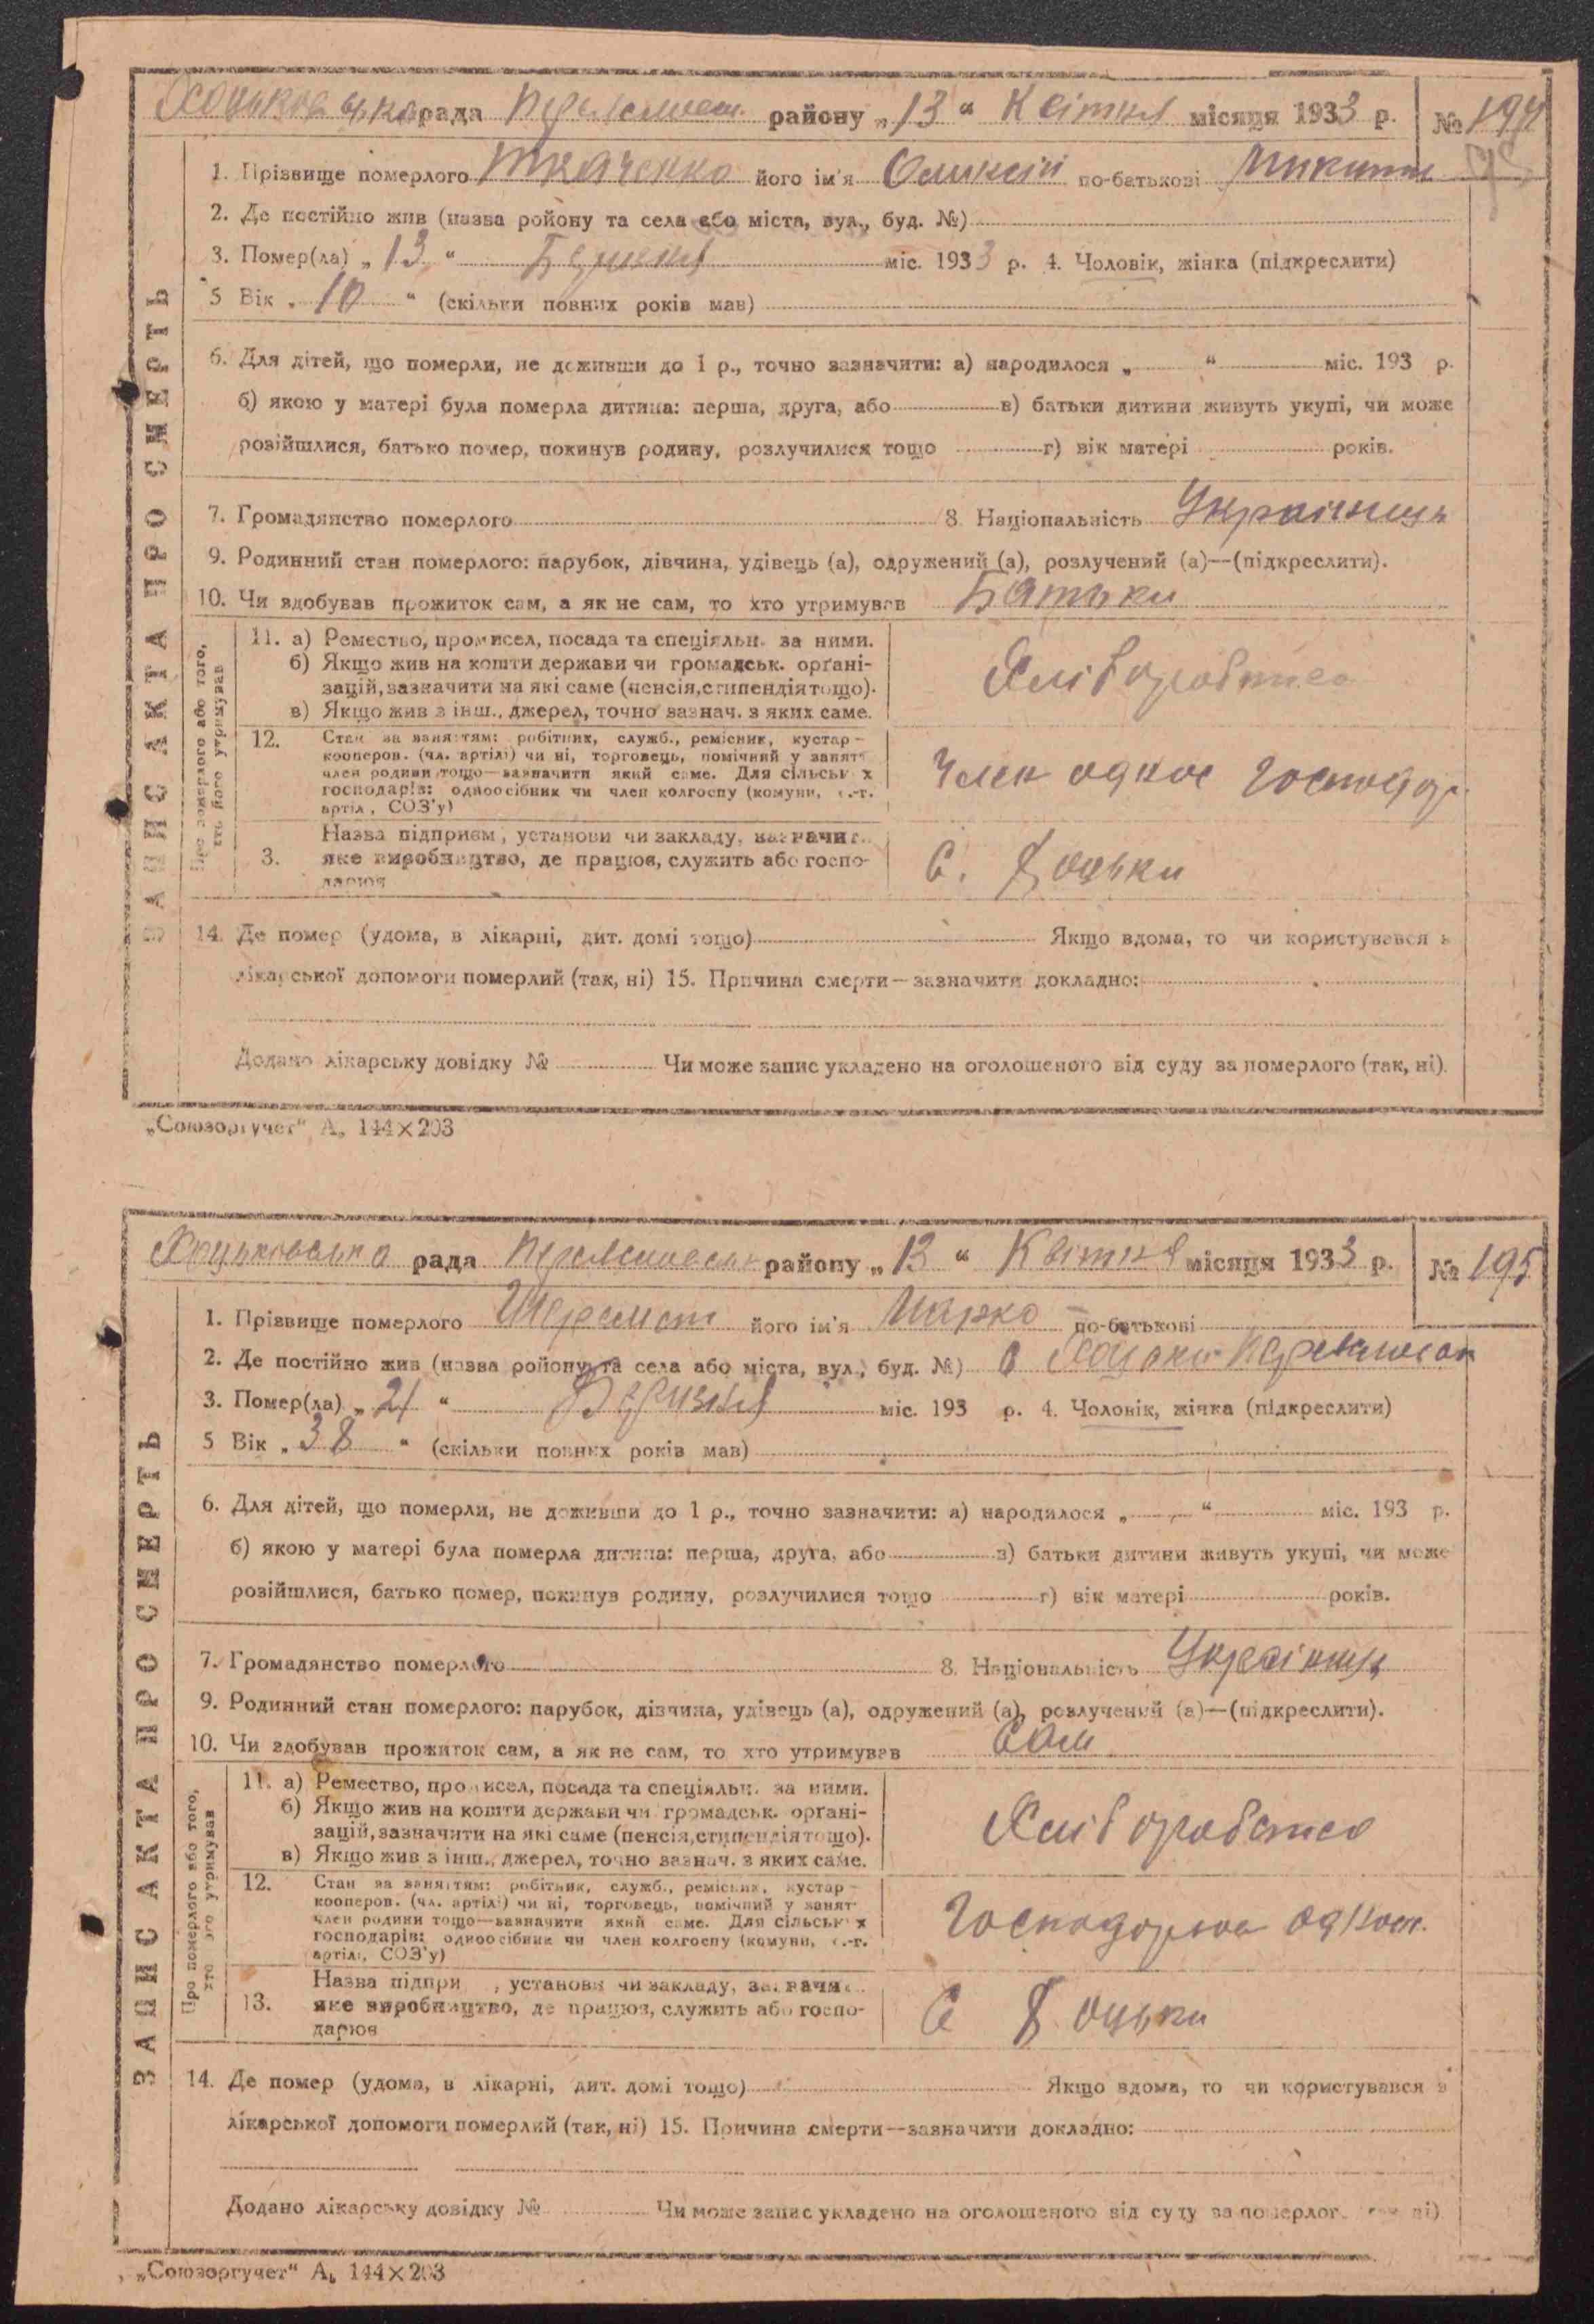 Хоцьківська рада Переяславськ. району „13“ Квітня місяця 1933 р. № 194
1. Прізвище померлого Ткаченко його ім'я Олексій по-батькові Микит
2. Де постійно жив (назва ройону та села або міста, вул., буд. №)
3. Помер(ла) „13“ міс. 1933 р. 4. Чоловік, жінка (підкреслити)
5 Вік „10“ (скільки повних років мав)
6. Для дітей, що померли, не доживши до 1 р., точно зазначити: а) народилося „ “ міс. 193 р.
б) якою у матері була померла дитина: перша, друга, або в) батьки дитини живуть укупі, чи може
розійшлися, батько помер, покинув родину, розлучилися тощо г) вік матері років.
7. Громадянство померлого 8. Національність Українець
9. Родинний стан померлого: парубок, дівчина, удівець (а), одружений (а), розлучений (а)—(підкреслити).
10. Чи здобував прожиток сам, а як не сам, то хто утримував Батьки
11. а) Ремество, промисел, посада та спеціяльн. за ними.
б) Якщо жив на кошти держави чи громадськ. орґані-
зацій, зазначити на які саме (пенсія, стипендія тощо).
в) Якщо жив з інш., джерел, точно зазнач. з яких саме.
Хліборобство
12. Стан за заняттям: робітник, служб., ремісник, кустар —
кооперов. (чл. артілі) чи ні, торговець, помічний у занят
член родини тощо—зазначити який саме. Для сільськ х
господарів: одноосібник чи член колгоспу (комуни, с.-г.
артіл, СОЗ'у)
Член однос господар.
3. Назва підприєм, установи чи закладу, зазначит
яке виробництво, де працює, служить або госпо-
дарює
С. Хоцьки
14. Де помер (удома, в лікарні, дит. домі тощо) Якщо вдома, то чи користувався з
лікарської допомоги померлий (так, ні) 15. Причина смерти—зазначити докладно:
Додано лікарську довідку № Чи може запис укладено на оголошеного від суду за померлого (так, ні).
ЗАПИС АКТА ПРО СМЕРТЬ
Про померлого або того,
хто його утримував
„Союзоргучет“ А, 144×203
Хоцьківська рада Переяславськ району „13“ Квітня місяця 1933 р. № 195
1. Прізвище померлого Шеремет його ім'я Марко по-батькові
2. Де постійно жив (назва ройону та села або міста, вул., буд. №) с Хоцьки Переяслов
3. Помер(ла) „21“ Березня міс. 193 р. 4. Чоловік, жінка (підкреслити)
5 Вік „38“ (скільки повних років мав)
6. Для дітей, що померли, не доживши до 1 р., точно зазначити: а) народилося „ “ міс. 193 р.
б) якою у матері була померла дитина: перша, друга, або в) батьки дитини живуть укупі, чи може
розійшлися, батько помер, покинув родину, розлучилися тощо г) вік матері років.
7. Громадянство померлого 8. Національність Українець
9. Родинний стан померлого: парубок, дівчина, удівець (а), одружений (а), розлучений (а)—(підкреслити).
10. Чи здобував прожиток сам, а як не сам, то хто утримував сам
11. а) Ремество, промисел, посада та спеціяльн. за ними.
б) Якщо жив на кошти держави чи громадськ. орґані-
зацій, зазначити на які саме (пенсія, стипендія тощо).
в) Якщо жив з інш., джерел, точно зазнач. з яких саме.
Хліборобство
12. Стан за заняттям: робітник, служб., ремісник, кустар —
кооперов. (чл. артілі) чи ні, торговець, помічний у занят
член родини тощо—зазначити який саме. Для сільськ х
господарів: одноосібник чи член колгоспу (комуни, с.-г.
артіл, СОЗ'у)
Господарює одноос.
13. Назва підпри , установи чи закладу, зазначи
яке виробництво, де працює, служить або госпо-
дарює
С Хоцьки
14. Де помер (удома, в лікарні, дит. домі тощо) Якщо вдома, то чи користувався з
лікарської допомоги померлий (так, ні) 15. Причина смерти—зазначити докладно:
Додано лікарську довідку № Чи може запис укладено на оголошеного від суду за померлог так ні)
ЗАПИС АКТА ПРО СМЕРТЬ
Про померлого або того,
хто его утримував
„Союзоргучет“ А, 144×203